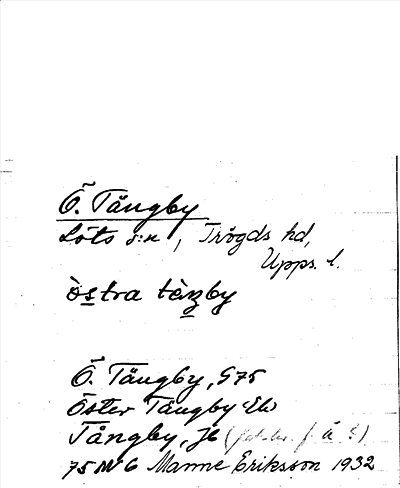 Ö. Tängby
Löts s:n, Trögds hd,
Upps. l.
östra tèŋby
Ö. Tängby, G75
Öster Tängby Ek
Tångby, J6 (
75 NV 6 Manne Eriksson 1932